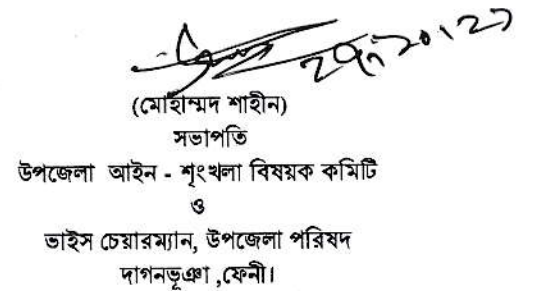 (মোহাম্মদ শাহীন)
সভাপতি
উপজেলা আইন - শৃংখলা বিষয়ক কমিটি
ও
ভাইস চেয়ারম্যান, উপজেলা পরিষদ
দাগনভূঞা ,ফেনী।